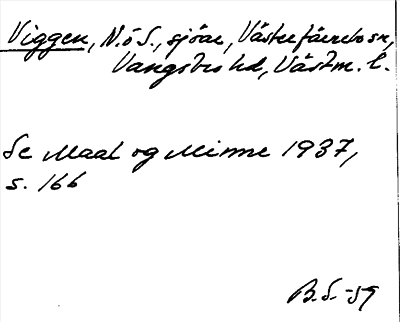 Viggen, N. o S., sjöar, Västerfärnebo sn,
Vangsbro hd, Västm. l.
Se Maal og Minne 1937,
s. 166
B.S. -59